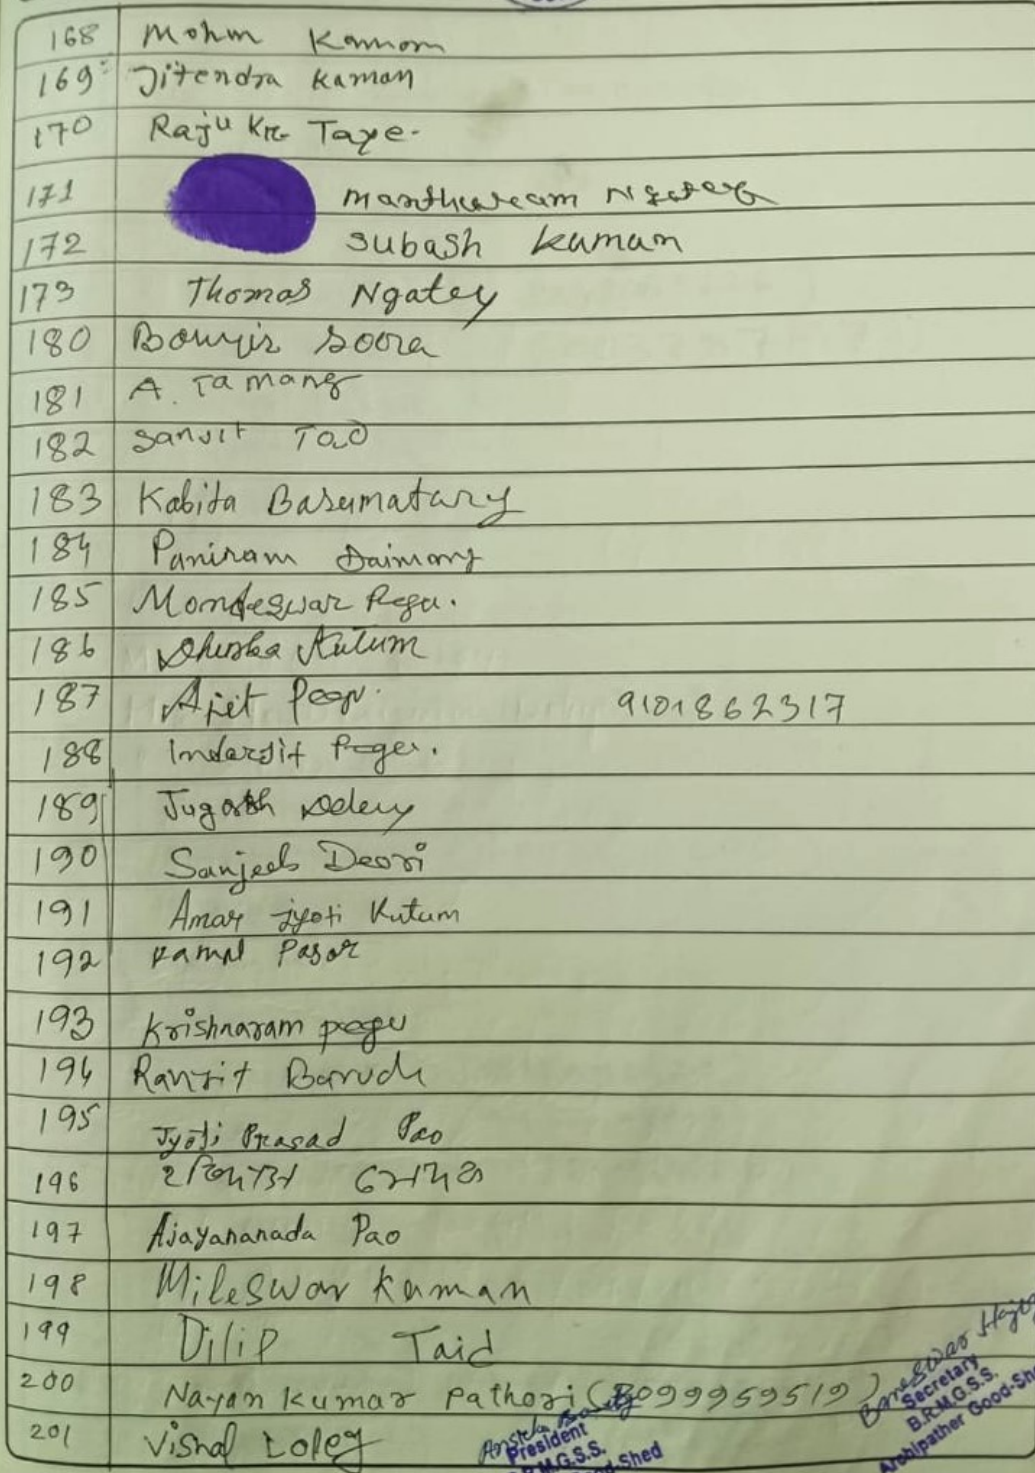 168 Mohm Kamom
169 Jitendra Kaman
170 Raju Kr. Taye.
171 Manthuream Ngatey
172 Subash Kaman
173 Thomas Ngatey
180 Soora
181 A. Tamang
182 Sanjit Tao
183 Kabita Basumatary
184 Paniram Daimary
185 Mondeswar Pegu.
186 Kutum
187 Ajit 9101862317
188 Inderjit Pegu.
189
190 Sanjeeb Deori
191 Amar jyoti Kutum
192 Kamal Pasar
193 Krishnaram pegu
194 Ranjit
195 Jyoti Prasad Pao
196
197 Ajayananada Pao
198 Mileswar Kaman
199 Dilip Taid
200 Nayan Kumar Pathori (6099959519)
201 Vishal Loleg
President
B.R.M.G.S.S.
Good-Shed
Baneswar
Secretary
B.R.M.G.S.S.
Archipather Good-She